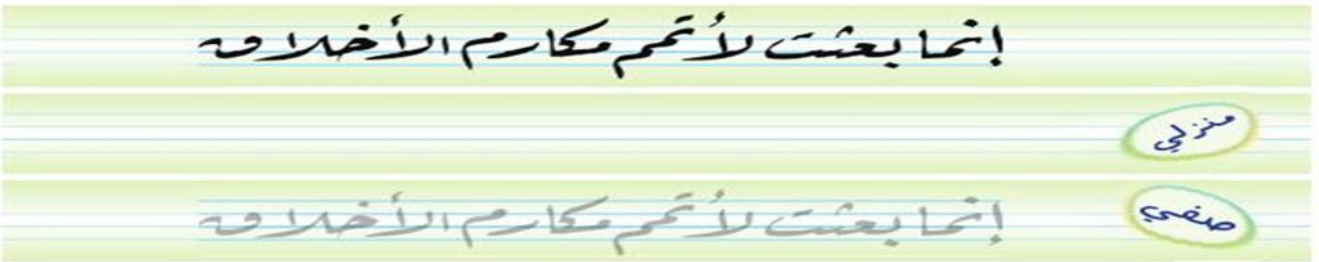 إنما بعثت لأُتمم مكارم الأخلاق
منزلي
صفي إنما بعثت لأُتمم مكارم الأخلاق